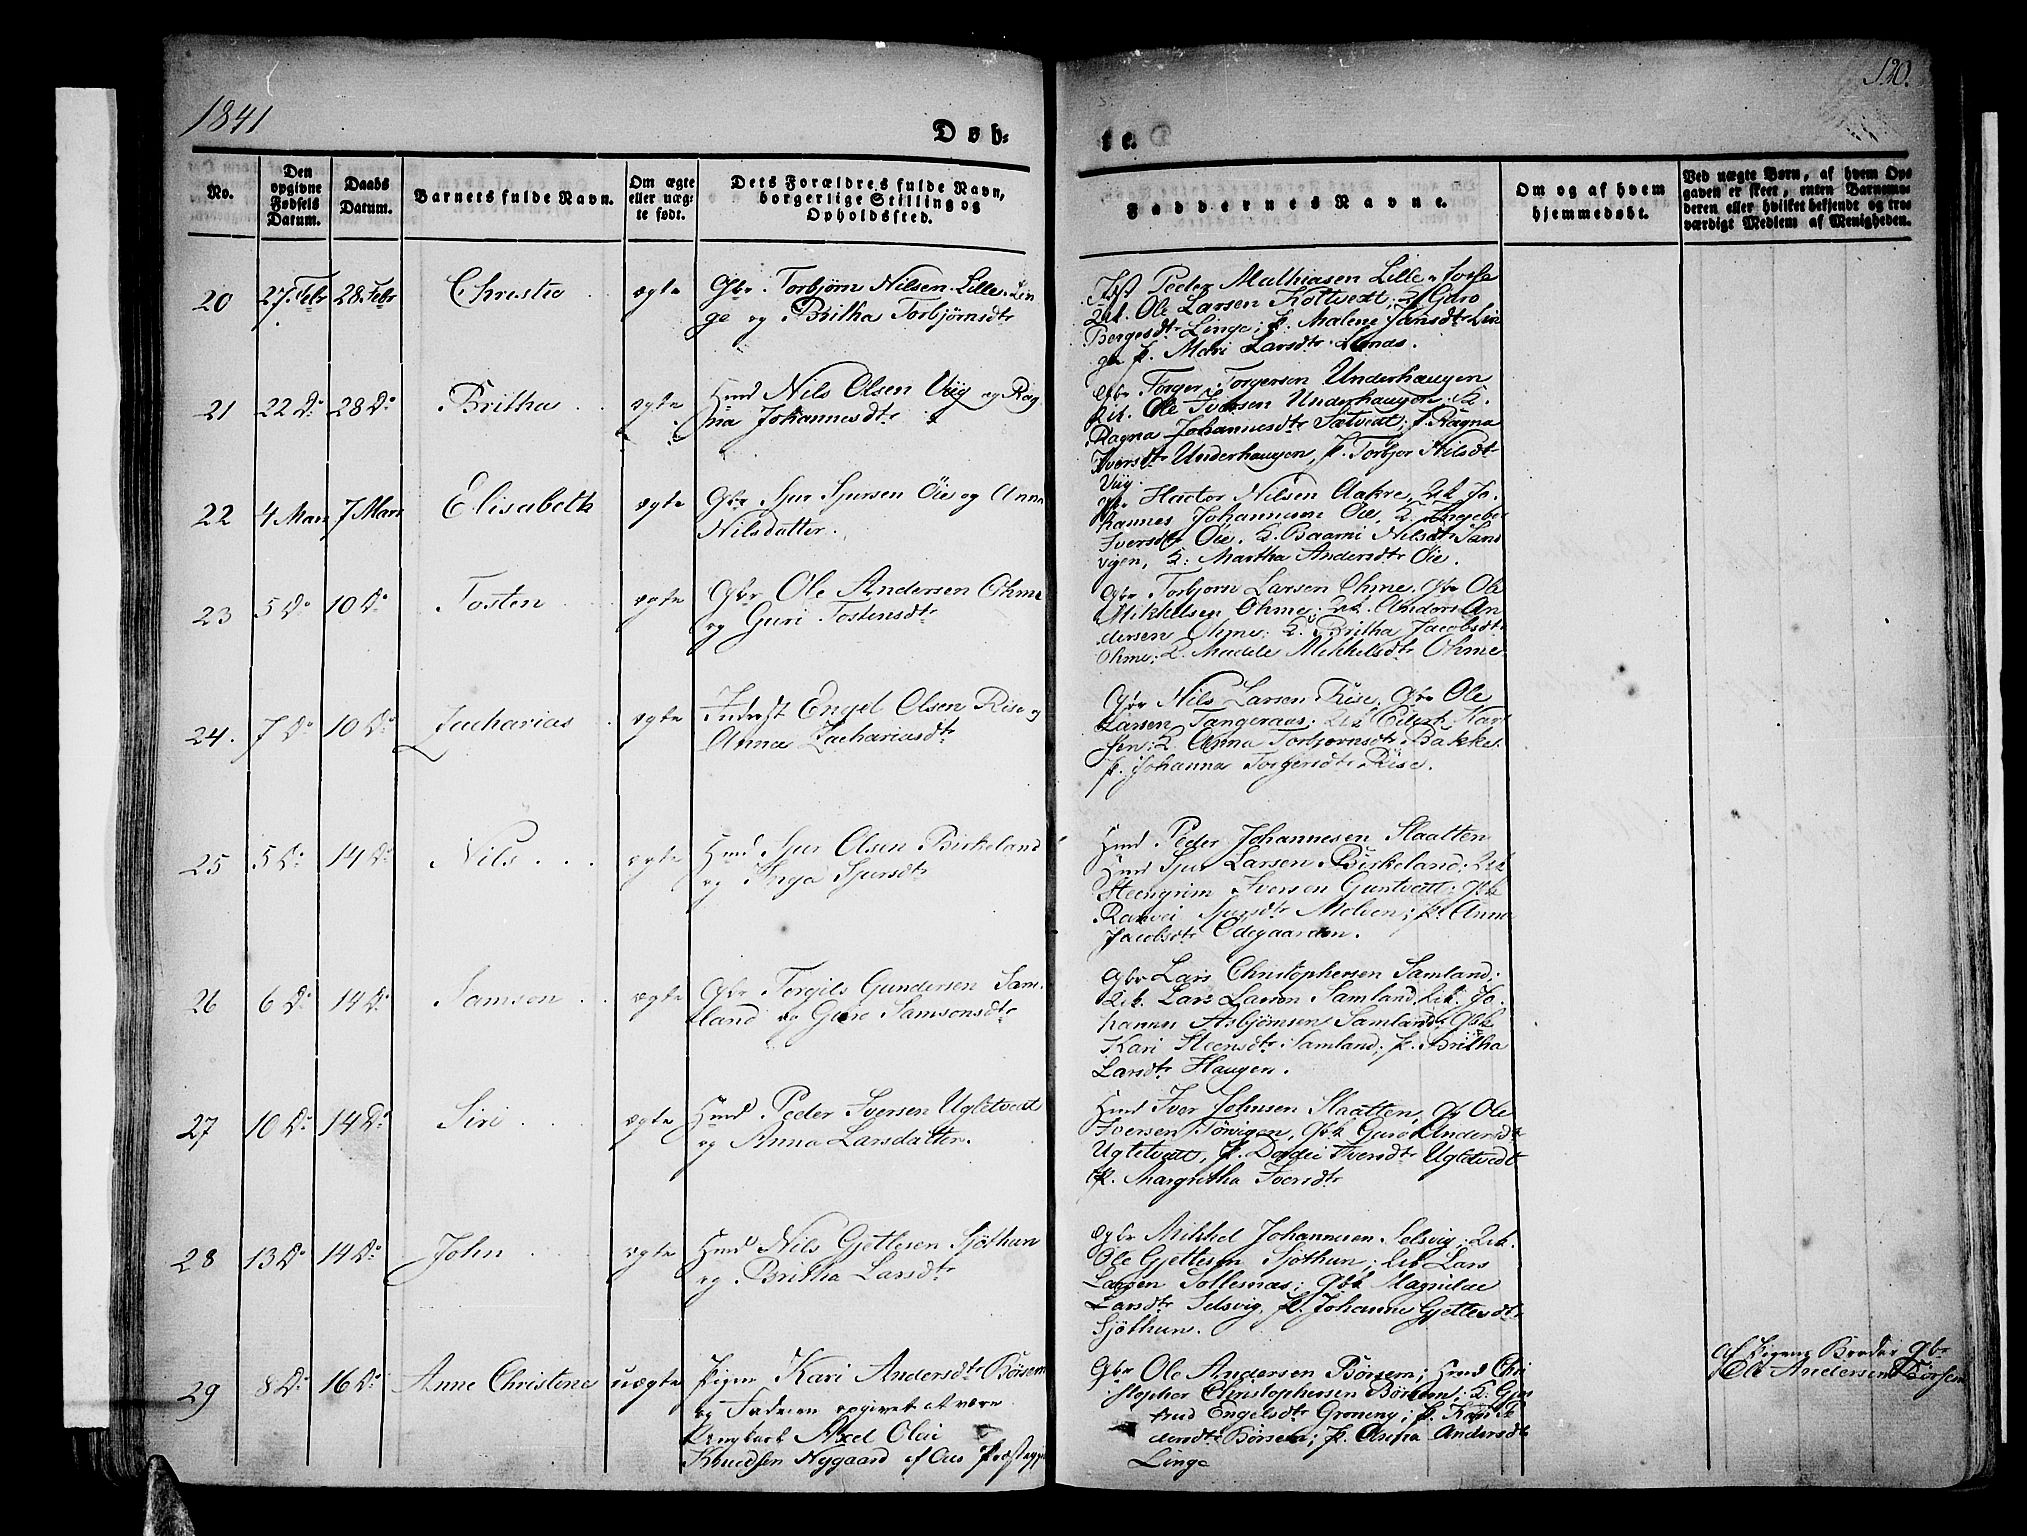 1841
120.
Døb-
te.
No.
Den opgivne Fødsels Datum.
Daabs Datum.
Barnets fulde Navn.
Om ægte eller uægte født.
Dets Forældres fulde Navn, borgerlige Stilling og Opholdsted.
Faddernes Navne.
Om og af hvem hjemmedøbt.
Ved uægte Børn, af hvem Opgaven er skeet, enten Barnemoderen eller hvilket bekjendt og troværdigt Medlem af Menigheden.
20
27. Febr
28. Febr
Christie
ægte
Gbr. Torbjørn Nilsen Lille-Lin
ge og Britha Torbjørnsdtr
Peder Mathiasen Lille
Ole Larsen Koltvedt; Guro
Bergesdtr Linge; P. Malene Hansdtr Lin
ge P. Mari Larsdtr
21
22 Do
28 Do
Britha
ægte
Huusmd Nils Olsen Viig og Rag
na Johannesdtr
Gbr Torger Torgersen Underhaugen
Ole Iversen Underhaugen; K.
Ragna Johannesdtr Sætvedt; P. Ragna
Iversdtr Underhaugen, P. Torbjør Nilsdtr
Viig.
22
4 Mars
7 Mars
Elisabeth
ægte
Gbr Sjur Sjursen Øie og Anna
Nilsdatter.
Gbr Hactor Nilsen Aakre, Jo-
hannes Johannesen Øie, K. Ingebor
Iversdtr Øie. K. Baarni Nilsdtr Sand
vigen, K: Martha Andersdtr Øie.
23
5 Do
10 Do
Tosten
ægte
Gbr Ole Andersen Ohme
og Guri Tostensdtr
Gbr Torbjørn Larsen Ohme. Gbr Ole
Mikkelsen Ohme; Anders An
dersen Ohme; K. Britha Jacobsdtr
Ohme; K. Madele Mikkelsdtr Ohme
24.
7 Do
10 Do
Zacharias
ægte
Inderst Engel Olsen Rise og
Anna Zachariasdtr
Gbr Nils Larsen Rise; Gbr Ole
Larsen Tangeraas; Eilert Kar
sen; K. Anna Torbjørnsdtr Bakke.
P. Johanna Torgersdtr Rise.
25
5 Do
14 Do
Nils
ægte
Hmd Sjur Olsen Birkeland
og Inga Sjursdtr
Hmd Peder Johannesen Slaatten
Hmd Sjur Larsen Birkeland;
Steengrim Iversen Guntvedt; Gbk
Ranvei Sjursdtr Molven; P. Anna
Jacobsdtr Ødegaarden.
26
6 Do
14 Do
Samson
ægte
Gbr Torgils Gundersen Sam-
land og Guro Samsonsdtr
Gbr Lars Christophersen Samland;
Lars Larsen Samland, Jo-
hannes Asbjørnsen Samland; Gbk
Kari Steensdtr Samland; P. Britha
Larsdtr Haugen.
27
10 Do
14 Do
Siri
ægte
Hmd Peder Iversen Ugletvedt
og Anna Larsdatter.
Hmd Iver Johnsen Slaatten, Gb Ole
Iversen Tørvigen, Gbk Guro Andersdtr
Ugletvedt, P. Dordei Iversdtr Ugletvedt
P. Margretha Iversdtr
28
13 Do
14 Do
John
ægte
Hmd Nils Gjetlesen Sjøthun
og Britha Larsdtr
Gbr Mikkel Johannesen Selsvig;
Ole Gjetlesen Sjøthun; Lars
Larsen Sollesnæs; Gbk Magnilde
Larsdtr Selsvig, P. Johanne Gjetlesdtr
Sjøthun.
29
8 Do
16 Do
Anne Christine
uægte
Pigen Kari Andersdtr Børsem
og Faderen opgivet at være
Ungkarl Axel Olai
Knudsen Nygaard af Ous Præstegjæld
Gbr Ole Andersen Børsem; Hmd Chri
stopher Christophersen Børsem; K. Gjer
trud Engelsdtr Groneng; P. Kari
dersdtr Børsem; P. Anna Andersdtr
Linge
af Pigens Broder Gbr
Ole Andersen Børsem